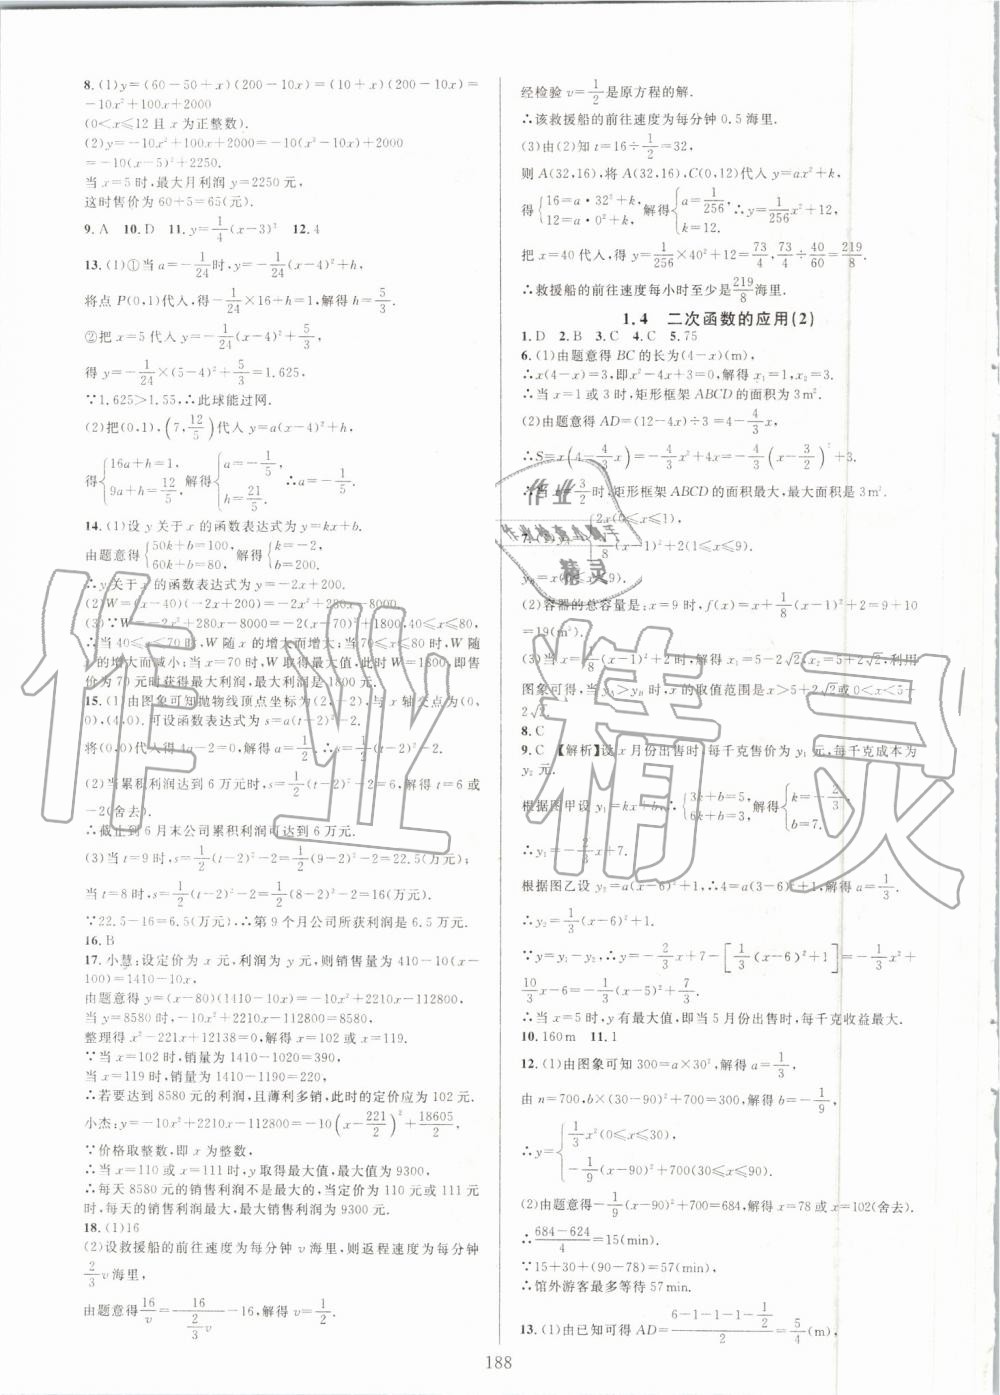 8. (1)y=(60-50+x)(200-10x)=(10+x)(200-10x)=
-10x²+100x+2000
(0<x≤12且x为正整数).
(2)y=-10x²+100x+2000=-10(x²-10x)+2000
=-10(x-5)²+2250.
当x=5时,最大月利润y=2250元,
这时售价为60+5=65(元).
9. A 10. D 11. y=1/4(x-3)² 12. 4
13. (1)①当a=-1/24时,y=-1/24(x-4)²+h,
将点P(0,1)代入,得-1/24×16+h=1,解得h=5/3.
②把x=5代入y=-1/24(x-4)²+5/3,
得y=-1/24×(5-4)²+5/3=1.625,
∵1.625>1.55,∴此球能过网.
(2)把(0,1),(7,12/5)代入y=a(x-4)²+h,
得{16a+h=1, 9a+h=12/5, 解得{a=-1/5, h=21/5. ∴a=-1/5.
14. (1)设y关于x的函数表达式为y=kx+b.
由题意得{50k+b=100, 60k+b=80, 解得{k=-2, b=200.
∴y关于x的函数表达式为y=-2x+200.
(2)W=(x-40)(-2x+200)=-2x²+280x-8000.
(3)∵W=-2x²+280x-8000=-2(x-70)²+1800,40≤x≤80,
∴当40≤x≤70时,W随x的增大而增大;当70≤x≤80时,W随
x的增大而减小;当x=70时,W取得最大值,此时W=1800,即售
价为70元时获得最大利润,最大利润是1800元.
15. (1)由图象可知抛物线顶点坐标为(2,-2),与x轴交点为(0,
0),(4,0),可设函数表达式为s=a(t-2)²-2.
将(0,0)代入得4a-2=0,解得a=1/2,∴s=1/2(t-2)²-2.
(2)当累积利润达到6万元时,s=1/2(t-2)²-2=6,解得t=6或
-2(舍去).
∴截止到6月末公司累积利润可达到6万元.
(3)当t=9时,s=1/2(t-2)²-2=1/2(9-2)²-2=22.5(万元);
当t=8时,s=1/2(t-2)²-2=1/2(8-2)²-2=16(万元).
∵22.5-16=6.5(万元),∴第9个月公司所获利润是6.5万元.
16. B
17. 小慧:设定价为x元,利润为y元,则销售量为410-10(x-
100)=1410-10x,
由题意得y=(x-80)(1410-10x)=-10x²+2210x-112800,
当y=8580时,-10x²+2210x-112800=8580,
整理得x²-221x+12138=0,解得x=102或x=119.
∵当x=102时,销量为1410-1020=390,
当x=119时,销量为1410-1190=220,
∴若要达到8580元的利润,且薄利多销,此时的定价应为102元.
小杰:y=-10x²+2210x-112800=-10(x-221/2)²+18605/2,
∵价格取整数,即x为整数,
∴当x=110或x=111时,y取得最大值,最大值为9300,
∴每天8580元的销售利润不是最大的,当定价为110元或111元
时,每天的销售利润最大,最大利润为9300元.
18. (1)16
(2)设救援船的前往速度为每分钟v海里,则返程速度为每分钟
2/3v海里,
由题意得16/v=16/(2/3v)-16,解得v=1/2.
经检验v=1/2是原方程的解.
∴该救援船的前往速度为每分钟0.5海里.
(3)由(2)知t=16÷1/2=32,
则A(32,16),将A(32,16),C(0,12)代入y=ax²+k,
得{16=a·32²+k, 12=a·0²+k, 解得{a=1/256, k=12. ∴y=1/256x²+12,
把x=40代入得y=1/256×40²+12=73/4,73/4÷40/60=219/8.
∴救援船的前往速度每小时至少是219/8海里.
1.4 二次函数的应用(2)
1. D 2. B 3. C 4. C 5. 75
6. (1)由题意得BC的长为(4-x)(m),
∴x(4-x)=3,即x²-4x+3=0.解得x₁=1,x₂=3.
∴当x=1或3时,矩形框架ABCD的面积为3m².
(2)由题意得AD=(12-4x)÷3=4-4/3x,
∴S=x(4-4/3x)=-4/3x²+4x=-4/3(x-3/2)²+3.
∴当x=3/2时,矩形框架ABCD的面积最大,最大面积是3m².
2x(0≤x≤1),
1/8(x-1)²+2(1≤x≤9).
(2)容器的总容量是:x=9时,f(x)=x+1/8(x-1)²+2=9+10
=19(m³).
(3)当x=1/8(x-1)²+2时,解得x₁=5-2√2,x₂=5+2√2,利用
图象可得,当yA>yB时,x的取值范围是x>5+2√2或0<x<5-
2√2.
8. C
9. C【解析】设x月份出售时,每千克售价为y₁元,每千克成本为
y₂元.
根据图甲设y₁=kx+b,∴{3k+b=5, 6k+b=3, 解得{k=-2/3, b=7.
∴y₁=-2/3x+7.
根据图乙设y₂=a(x-6)²+1,∴4=a(3-6)²+1,解得a=1/3.
∴y₂=1/3(x-6)²+1,
∵y=y₁-y₂,∴y=-2/3x+7-[1/3(x-6)²+1]=-1/3x²+
10/3x-6=-1/3(x-5)²+7/3.
∴当x=5时,y有最大值,即当5月份出售时,每千克收益最大.
10. 160m 11. 1
12. (1)由图象可知300=a×30²,解得a=1/3,
由n=700,b×(30-90)²+700=300,解得b=-1/9,
∴y={1/3x²(0≤x≤30), -1/9(x-90)²+700(30≤x≤90).
(2)由题意得-1/9(x-90)²+700=684,解得x=78或x=102(舍去).
∴(684-624)/4=15(min).
∵15+30+(90-78)=57(min),
∴馆外游客最多等待57min.
13. (1)由已知可得AD=(6-1-1-1-1/2)/2=5/4(m),
188
作业精灵
作业
作业检查小助手
精灵